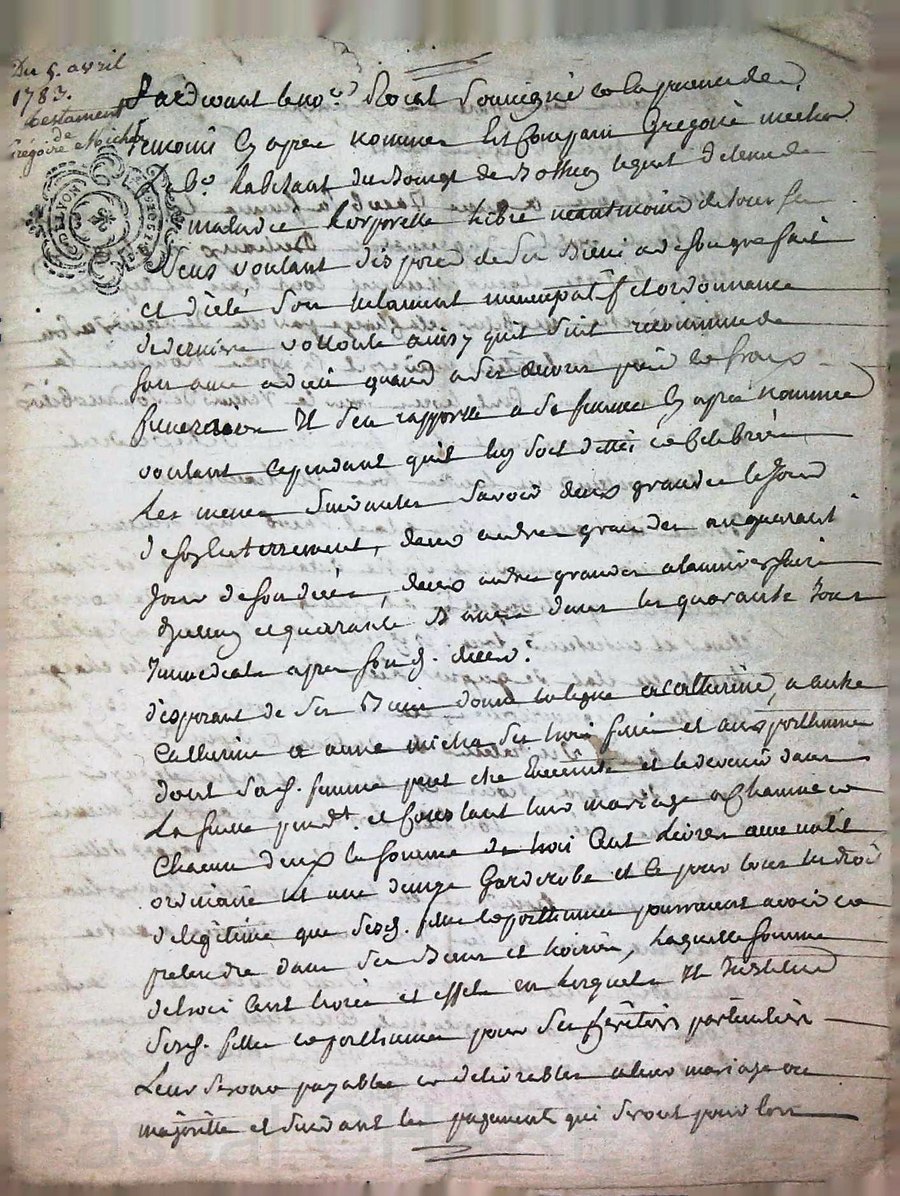 Du 5. avril
1783.
testament
de
Grégoire Micha
Pardevant le no.re Royal Soussigné et la presence des
Temoins cy apres nommes fut Comparu Gregoire
habitant du Bourg de detenu de
maladie Corporelle libre neantmoins de tous ses
sens voulant disposer de ses Biens a de son gre fait
et dicté son testament nuncupatif et ordonnance
de derniere volonté ainsy qu'il suit recommande
son ame a dieu quand a ses œuvres pies et frais
funeraires Il s'en rapporte a sa femme cy apres nommée
voulant cependant qu'il luy soit dittes et Celebrées
Les messes suivantes savoir deux grandes le Jour
de son enterrement, deux autres grandes au quarant
Jour de son deces, deux autres grandes a l'anniversaire
et quarante Basses dans les quarante Jours
Immediats apres son d. deces.
disposant de ses Biens donne et legue a Catherine, a autre
Catherine et anne micha ses trois filles et aux posthumes
dont sad. femme peut etre Enceinte et le devenir dans
La suite pend.t et Constant leur mariage a Chacune et
Chacun d'eux la somme de trois Cent Livres une
ordinaire et une Garderobe et ce pour tous les droits
de legitime que sesd. filles et posthumes pourraient avoir et
pretendre dans ses Biens et hoirie, Laquelle somme
de trois Cent livres et effets en lesquels Il Institue
sesd. filles et posthumes pour ses heritiers particuliers
Leur seront payables et delivrables a leur mariage ou
majorité et suivant les payements qui seront pour lors